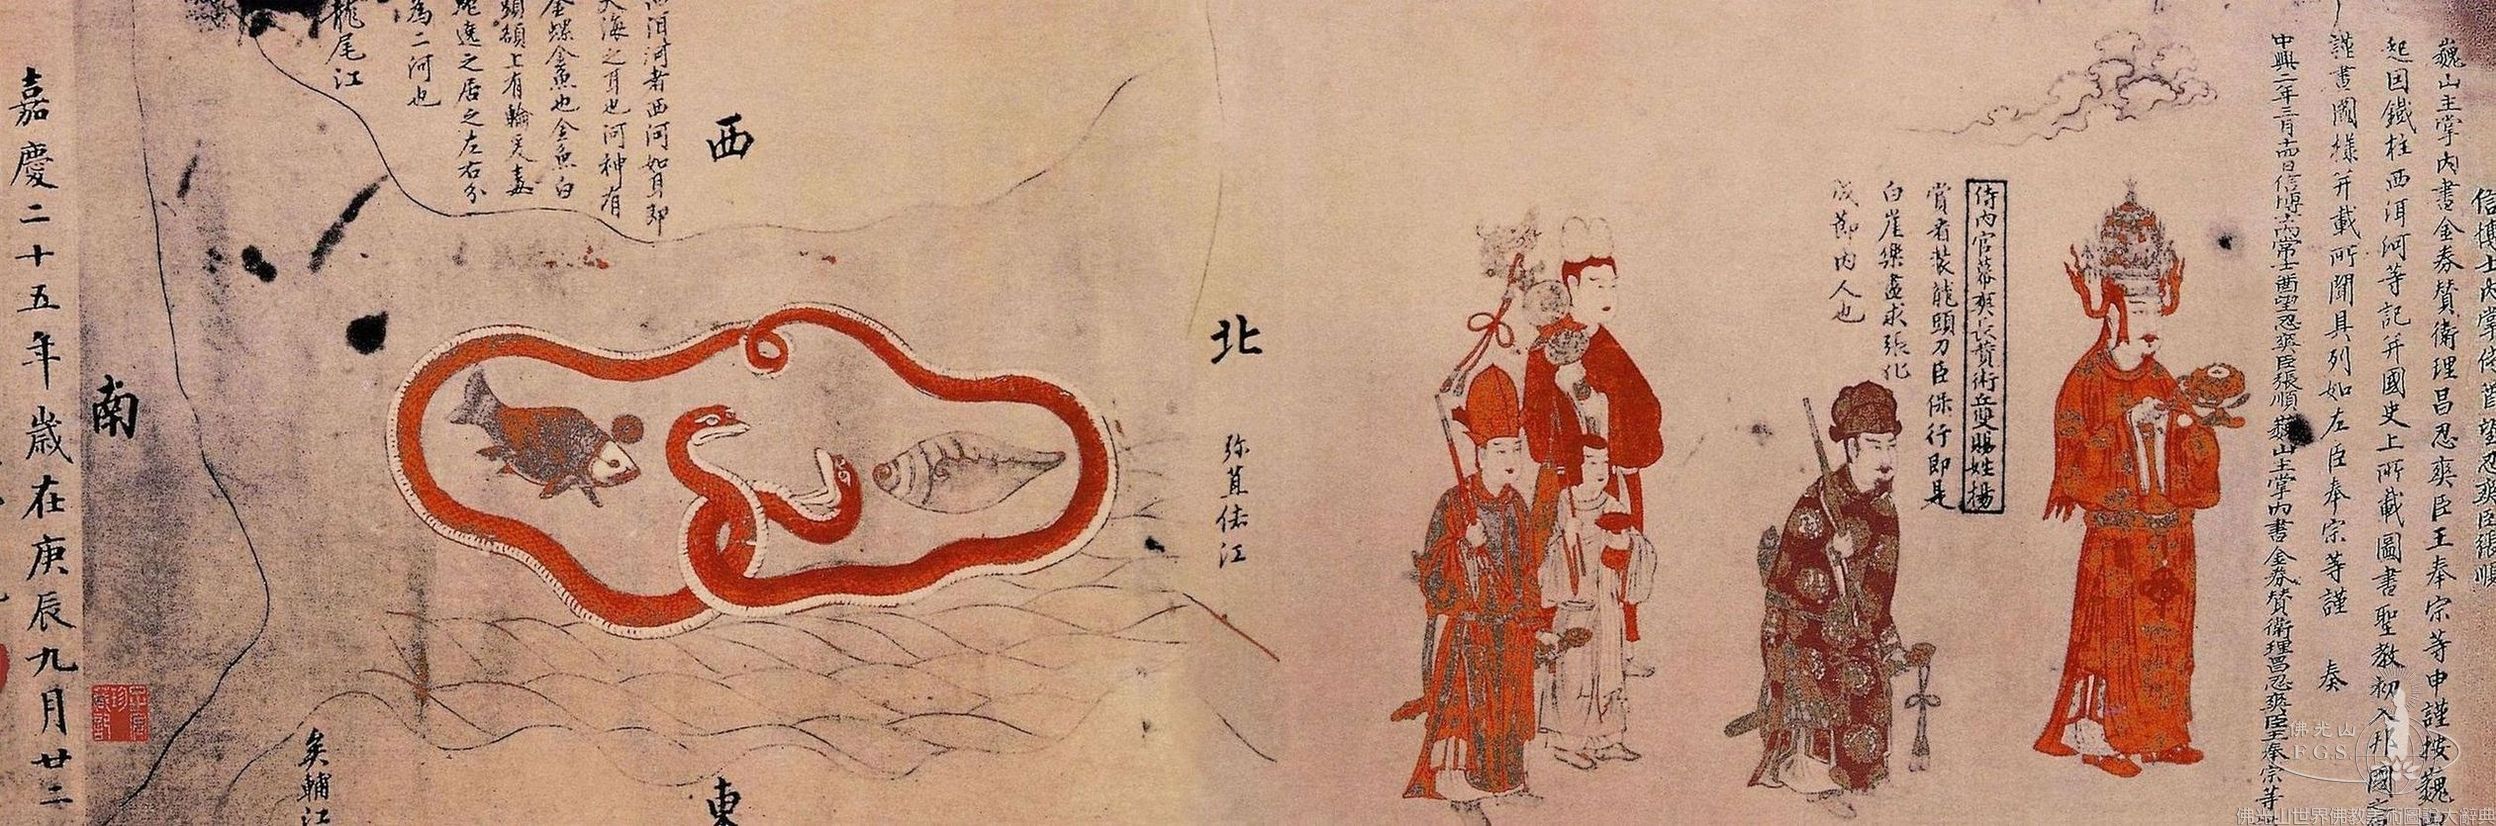 信博士內掌侍酋望忍爽臣張順
巍山主掌內書金券贊衛理昌忍爽臣王奉宗等申謹按巍山
起因鐵柱西洱河等記并國史上所載圖書聖教初入邦國之
謹畫圖樣并載所聞具列如左臣奉宗等謹 奏
中興二年三月十四日信博士內常士酋望忍爽臣張順 巍山主掌內書金券贊衛理昌忍爽臣王奉宗等
侍內官幕爽長賛衛丘雙賜姓楊
賞者裝龍頭刀臣保行即是
白崖樂盡求張化
成節內人也
北
弥苴佉江
西
西洱河者西河如耳即
大海之耳也河神有
金螺金魚也金魚白
頭額上有輪爰毒
蛇遶之居之左右分
為二河也
龍尾江
東
矣輔江
南
嘉慶二十五年歲在庚辰九月廿二
佛光山
F.G.S.
佛光山世界佛教美術圖說大辭典